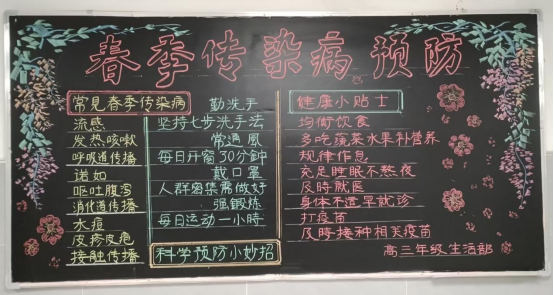 春季传染病预防
常見春季传染病
流感
发热咳嗽
呼吸道传播
诺如
呕吐腹泻
消化道传播
水痘
皮疹皮疱
接触传播
勤洗手
坚持七步洗手法
常通風
每日开窗30分钟
戴口罩
人群密集需做好
强鍛炼
每日运动一小時
科学预防小妙招
健康小贴士
均衡饮食
多吃蔬菜水果补营养
规律作息
充足睡眠不熬夜
及時就医
身体不适早就诊
打疫苗
及時接种相关疫苗
高三年级生活部